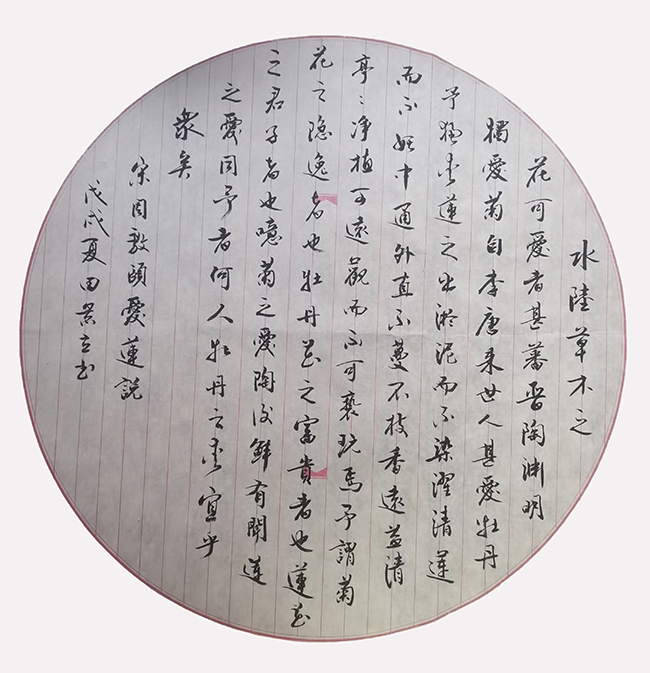 水陸草木之
花可愛者甚蕃晋陶渊明
獨愛菊自李唐来世人甚愛牡丹
予独爱蓮之出淤泥而不染濯清蓮
而不妖中通外直不蔓不枝香遠益清
亭々净植可遠觀而不可褻玩焉予謂菊
花之隐逸者也牡丹花之富貴者也蓮花
之君子者也噫菊之愛陶後鮮有聞蓮
之愛同予者何人牡丹之爱宜乎
衆矣
宋周敦頤愛蓮説
戊戌夏田景立书